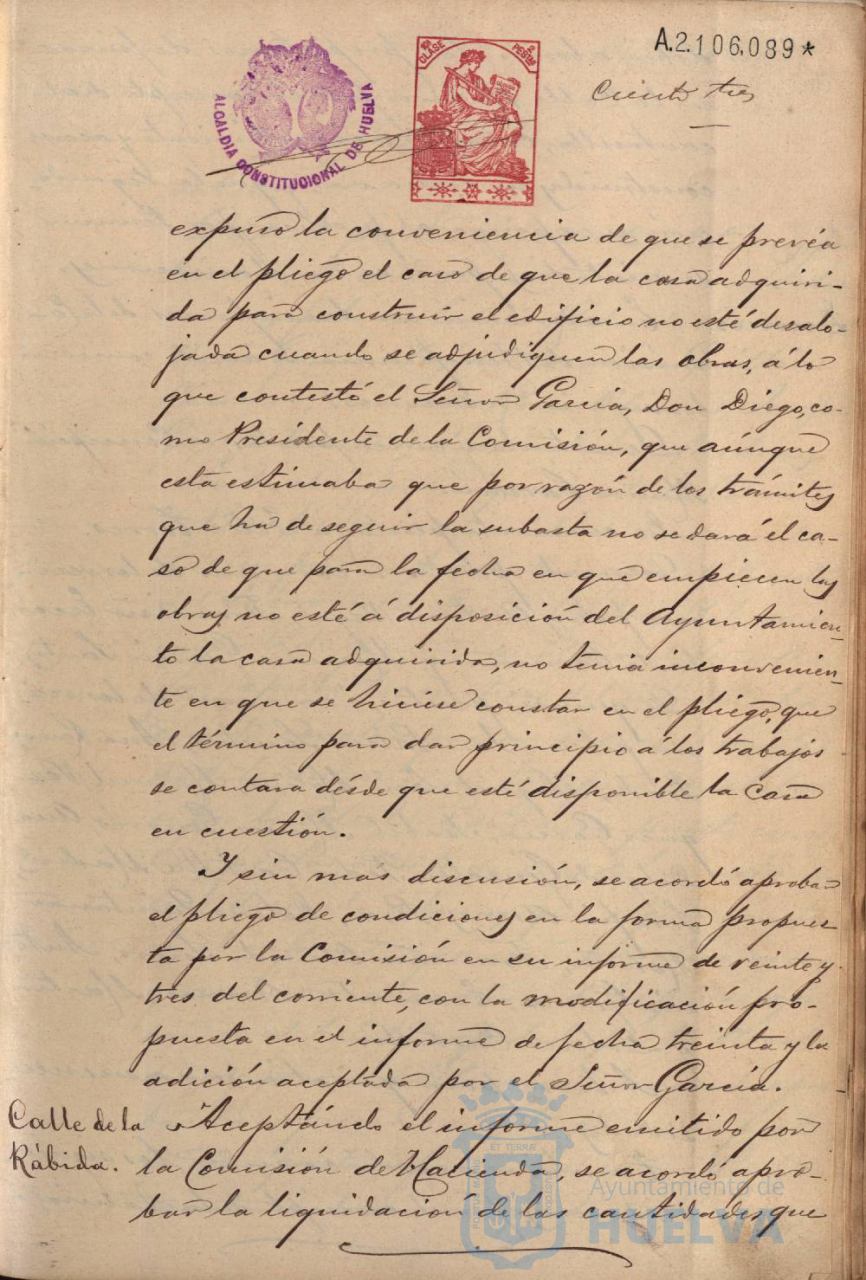 A.2.106.089*
ALCALDIA CONSTITUCIONAL DE HUELVA
CLASE
PESETAS
Ciento tres
expuso la conveniencia de que se preveá
en el pliego el caso de que la casa adquiri-
da para construir el edificio no esté desalo-
jada cuando se adjudiquen las obras, á lo
que contestó el Señor García, Don Diego, co-
mo Presidente de la Comisión, que aúnque
esta estimaba que por razón de los trámites
que ha de seguir la subasta no se dará el ca-
so de que para la fecha en que empiecen las
obras no esté á disposición del Ayuntamien-
to la casa adquirida, no tenia inconvenien-
te en que se hiciese constar en el pliego, que
el término para dar principio á los trabajos
se contara désde que esté disponible la casa
en cuestión.
Y sin mas discusión, se acordó aprobar
el pliego de condiciones en la forma propues
ta por la Comisión en su informe de veinte y
tres del corriente, con la modificación pro-
puesta en el informe de fecha treinta y la
adición aceptada por el Señor García.
Calle de la
Rábida.
Aceptándo el informe emitido por
la Comisión de Hacienda, se acordó apro-
bar la liquidación de las cantidades que
Ayuntamiento de
HUELVA